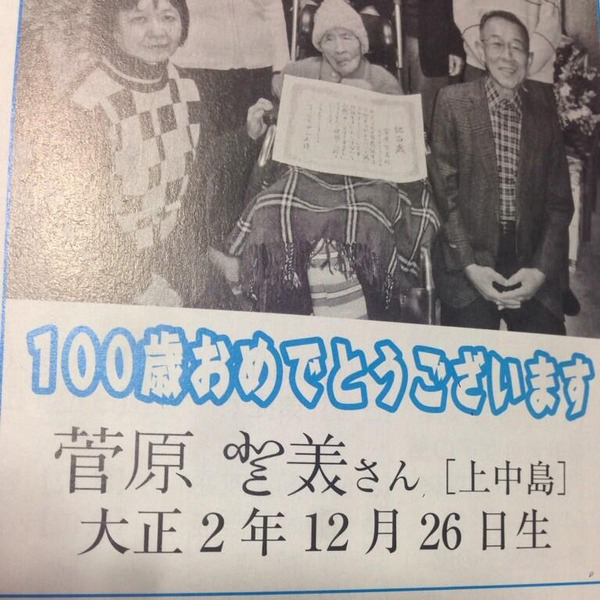 祝百歳
100歳おめでとうございます
菅原 𛁻美さん [上中島]
大正2年12月26日生